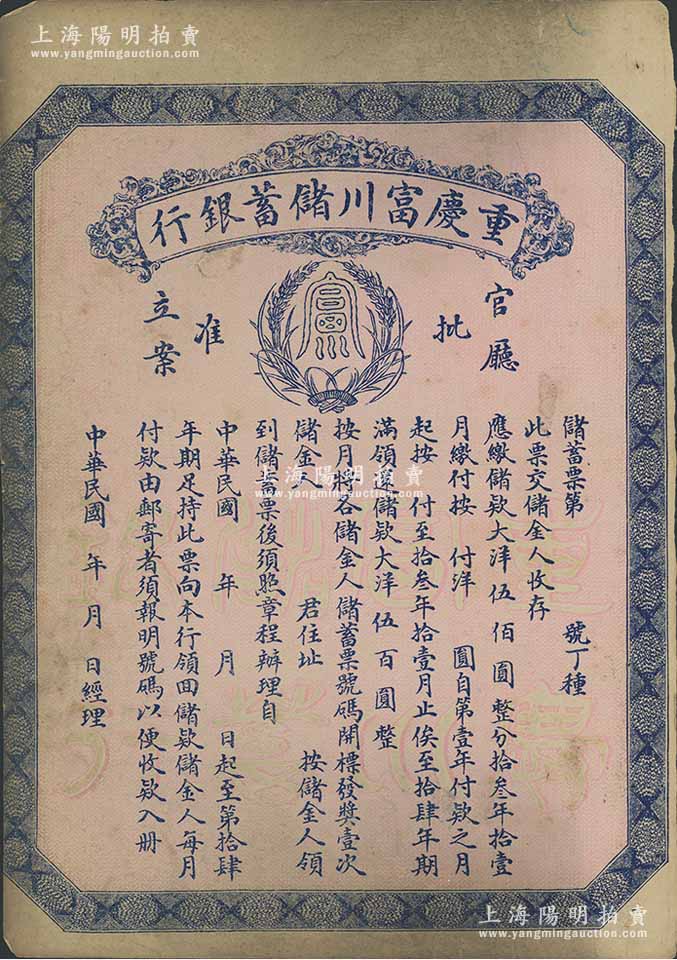 上海陽明拍賣
www.yangmingauction.com
重慶富川儲蓄銀行
官廳
批
准
立案
儲蓄票第 號丁種
此票交儲金人收存
應繳儲款大洋伍佰圓整分拾叁年拾壹
月繳付按 付洋 圓自第壹年付款之月
起按 付至拾叁年拾壹月止俟至拾肆年期
滿領還儲款大洋伍百圓整
按月將各儲金人儲蓄票號碼開標發獎壹次
儲金人 君住址 按儲金人領
到儲蓄票後須照章程辦理自
中華民國 年 月 日起至第拾肆
年期足持此票向本行領回儲款儲金人每月
付款由郵寄者須報明號碼以便收款入册
中華民國 年 月 日經理
上海陽明拍賣
www.yangmingauction.com
上海陽明拍賣
www.yangmingauction.com